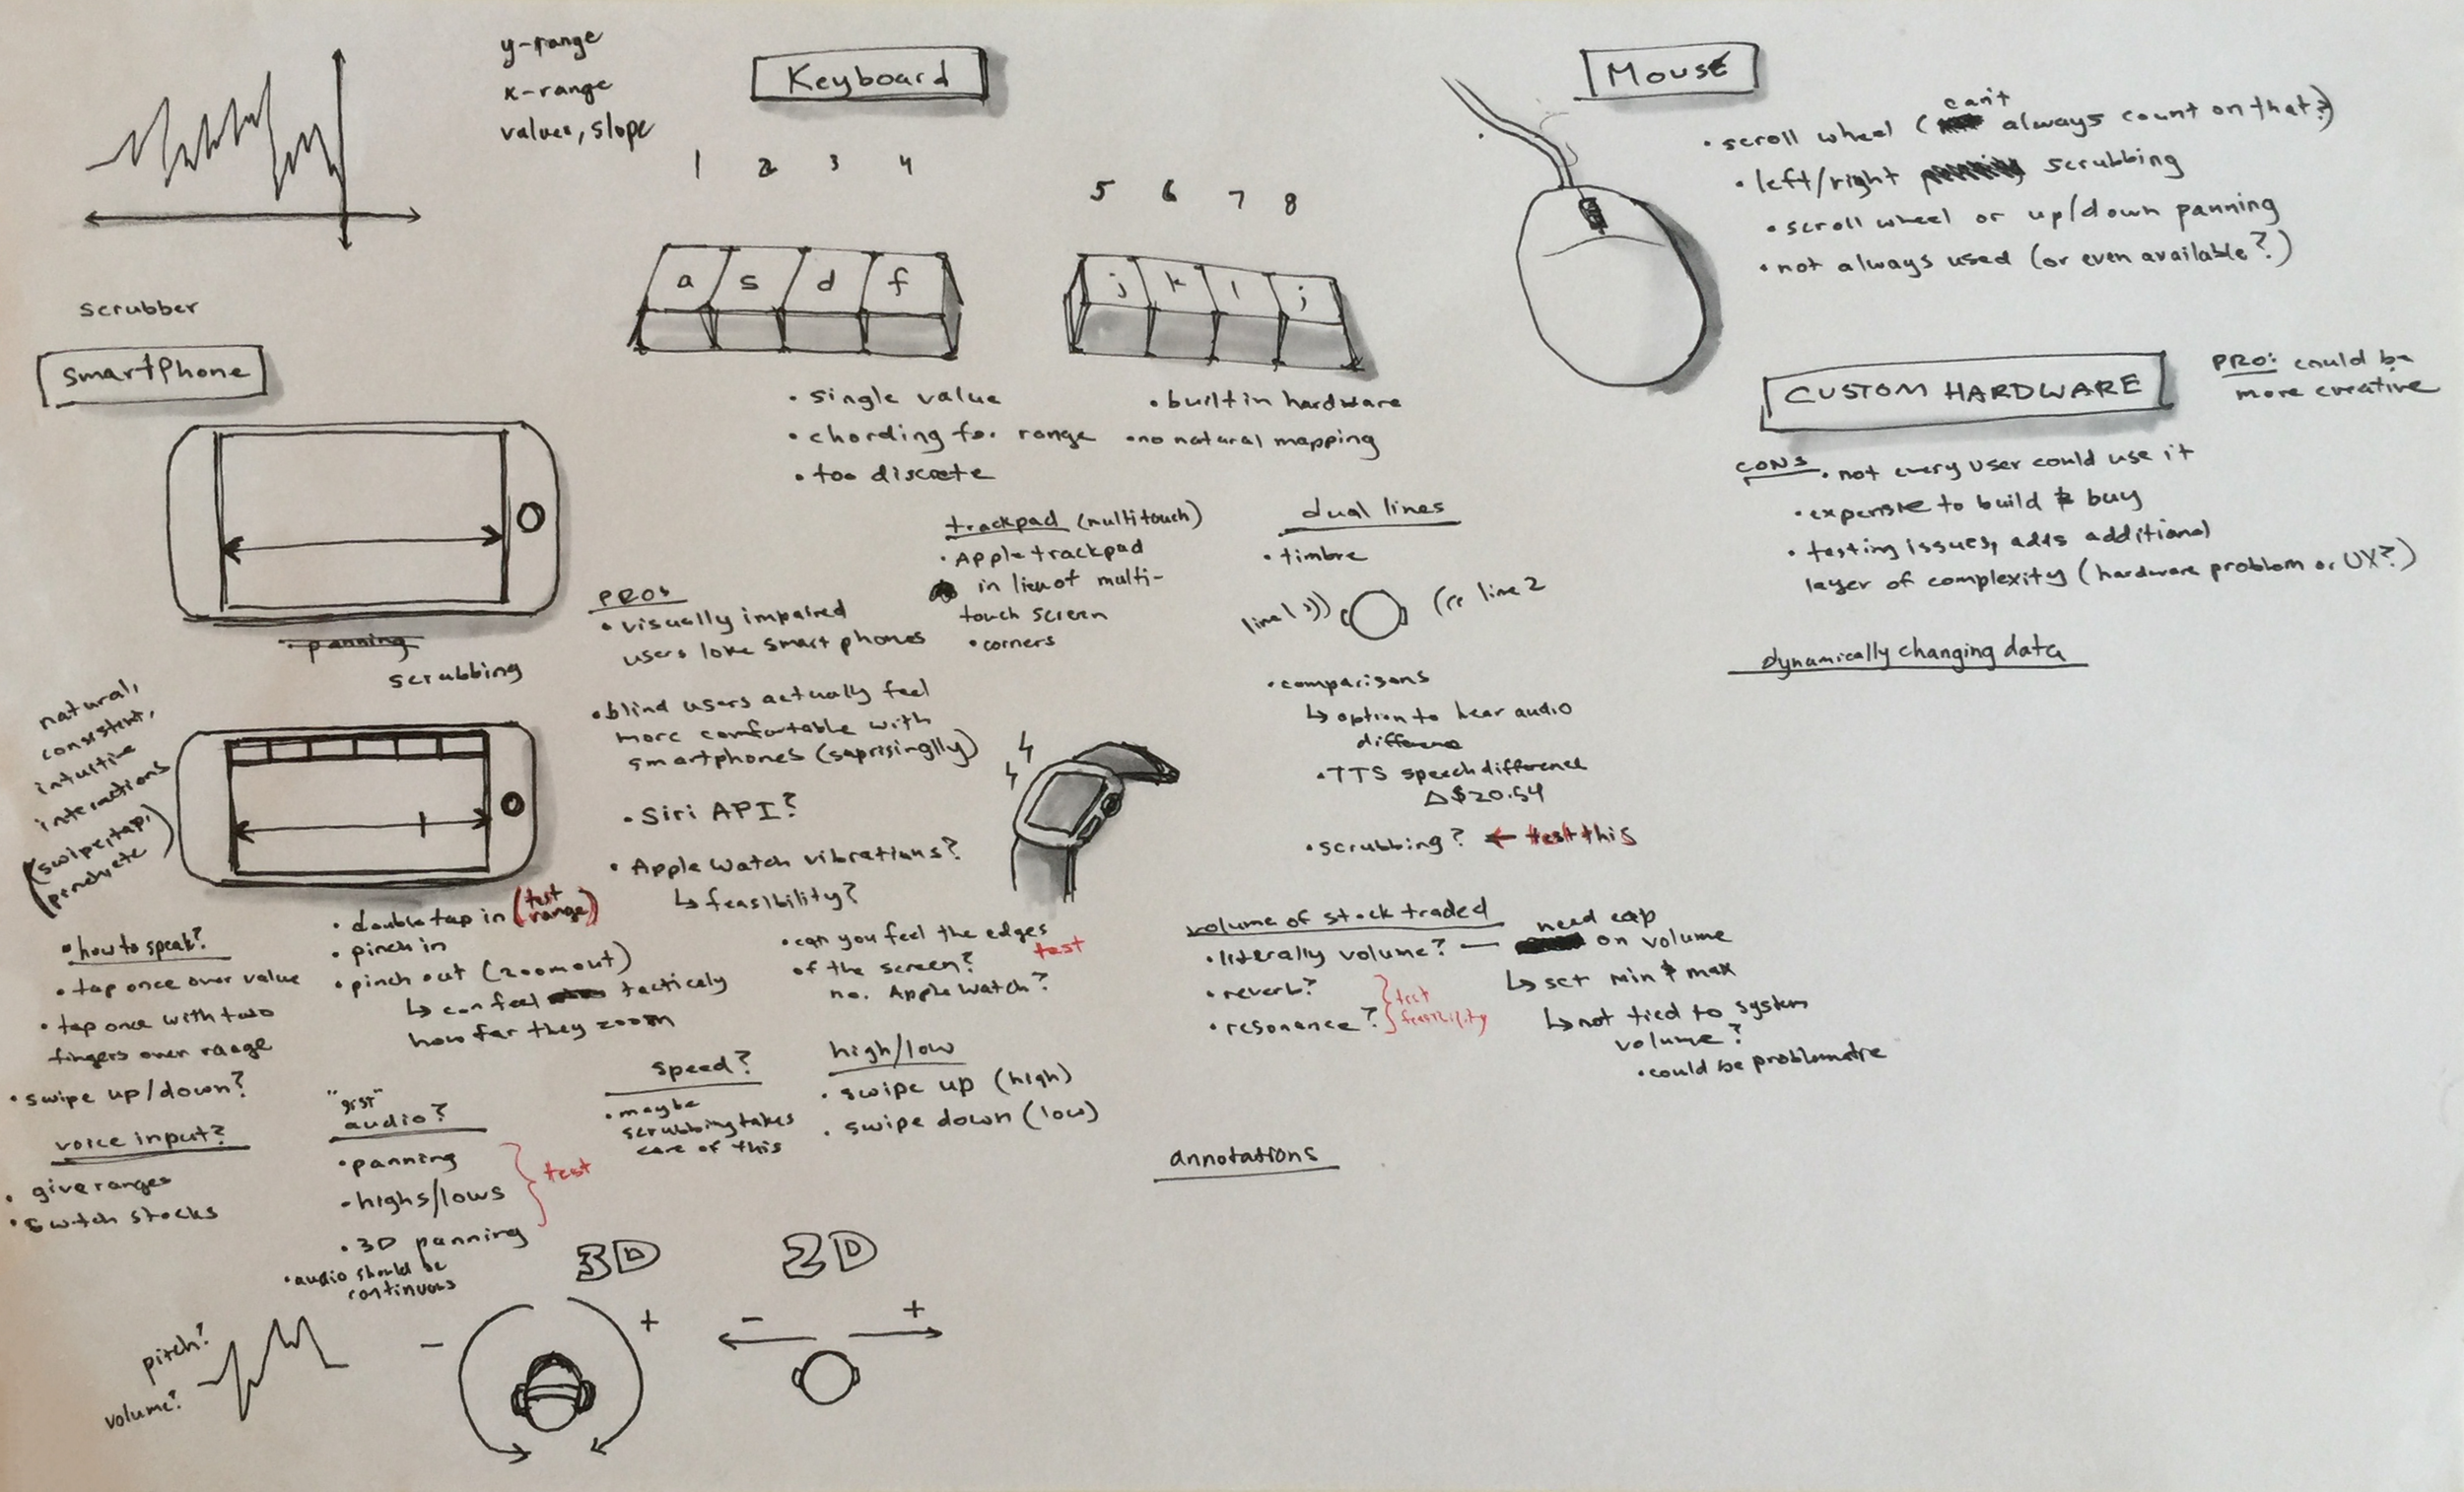 y-range
x-range
values, slope
scrubber
Keyboard
1 2 3 4
5 6 7 8
a s d f
j k l ;
• single value
• chording for range
• too discrete
• built in hardware
• no natural mapping
Mouse
can't
• scroll wheel ( always count on that?)
• left/right scrubbing
• scroll wheel or up/down panning
• not always used (or even available?)
CUSTOM HARDWARE
PRO: could be
more creative
CONS
• not every user could use it
• expensive to build & buy
• testing issues, adds additional
layer of complexity (hardware problem or UX?)
dynamically changing data
smartphone
panning
scrubbing
natural,
consistent,
intuitive
interactions
(swipe, tap,
pinch, etc)
PROS
• visually impaired
users love smart phones
• blind users actually feel
more comfortable with
smartphones (saprisinglly)
• Siri API?
• Apple Watch vibrations?
↳ feasibility?
trackpad (multitouch)
• Apple trackpad
in lieu of multi-
touch screen
• corners
dual lines
• timbre
line 1 ))) ((( line 2
• comparisons
↳ option to hear audio
difference
• TTS speech difference
Δ$20.54
• scrubbing? ← test this
• how to speak?
• tap once over value
• tap once with two
fingers over range
• swipe up/down?
• double tap in (test
range)
• pinch in
• pinch out (zoom out)
↳ can feel tacticaly
how far they zoom
• can you feel the edges
of the screen? test
no. Apple Watch?
volume of stock traded
• literally volume? — need cap
on volume
↳ set min & max
↳ not tied to system
volume?
• could be problematic
• reverb?
• resonance?
test
feasibility
voice input?
• give ranges
• switch stocks
"gist"
audio?
• panning
• highs/lows
• 3D panning
test
• audio should be
continuous
speed?
• maybe
scrubbing takes
care of this
high/low
• swipe up (high)
• swipe down (low)
annotations
pitch?
volume?
3D
- +
2D
- +